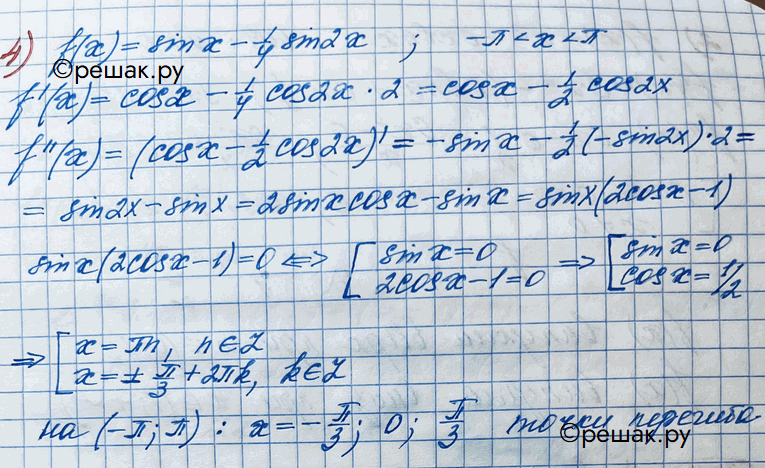 4) f(x) = sin x - 1/4 sin2x ; -π < x < π
©решак.ру
f'(x) = cosx - 1/4 cos2x · 2 = cosx - 1/2 cos2x
f''(x) = (cosx - 1/2 cos2x)' = -sinx - 1/2 (-sin2x) · 2 =
= sin2x - sinx = 2sinxcosx - sinx = sinx(2cosx - 1)
sinx(2cosx - 1) = 0 <=> [ sinx = 0 => [ sinx = 0
2cosx - 1 = 0 cosx = 1/2
=> [ x = πn, n ∈ Z
x = ± π/3 + 2πk, k ∈ Z
на (-π; π) : x = - π/3; 0; π/3 точки перегиба
©решак.ру